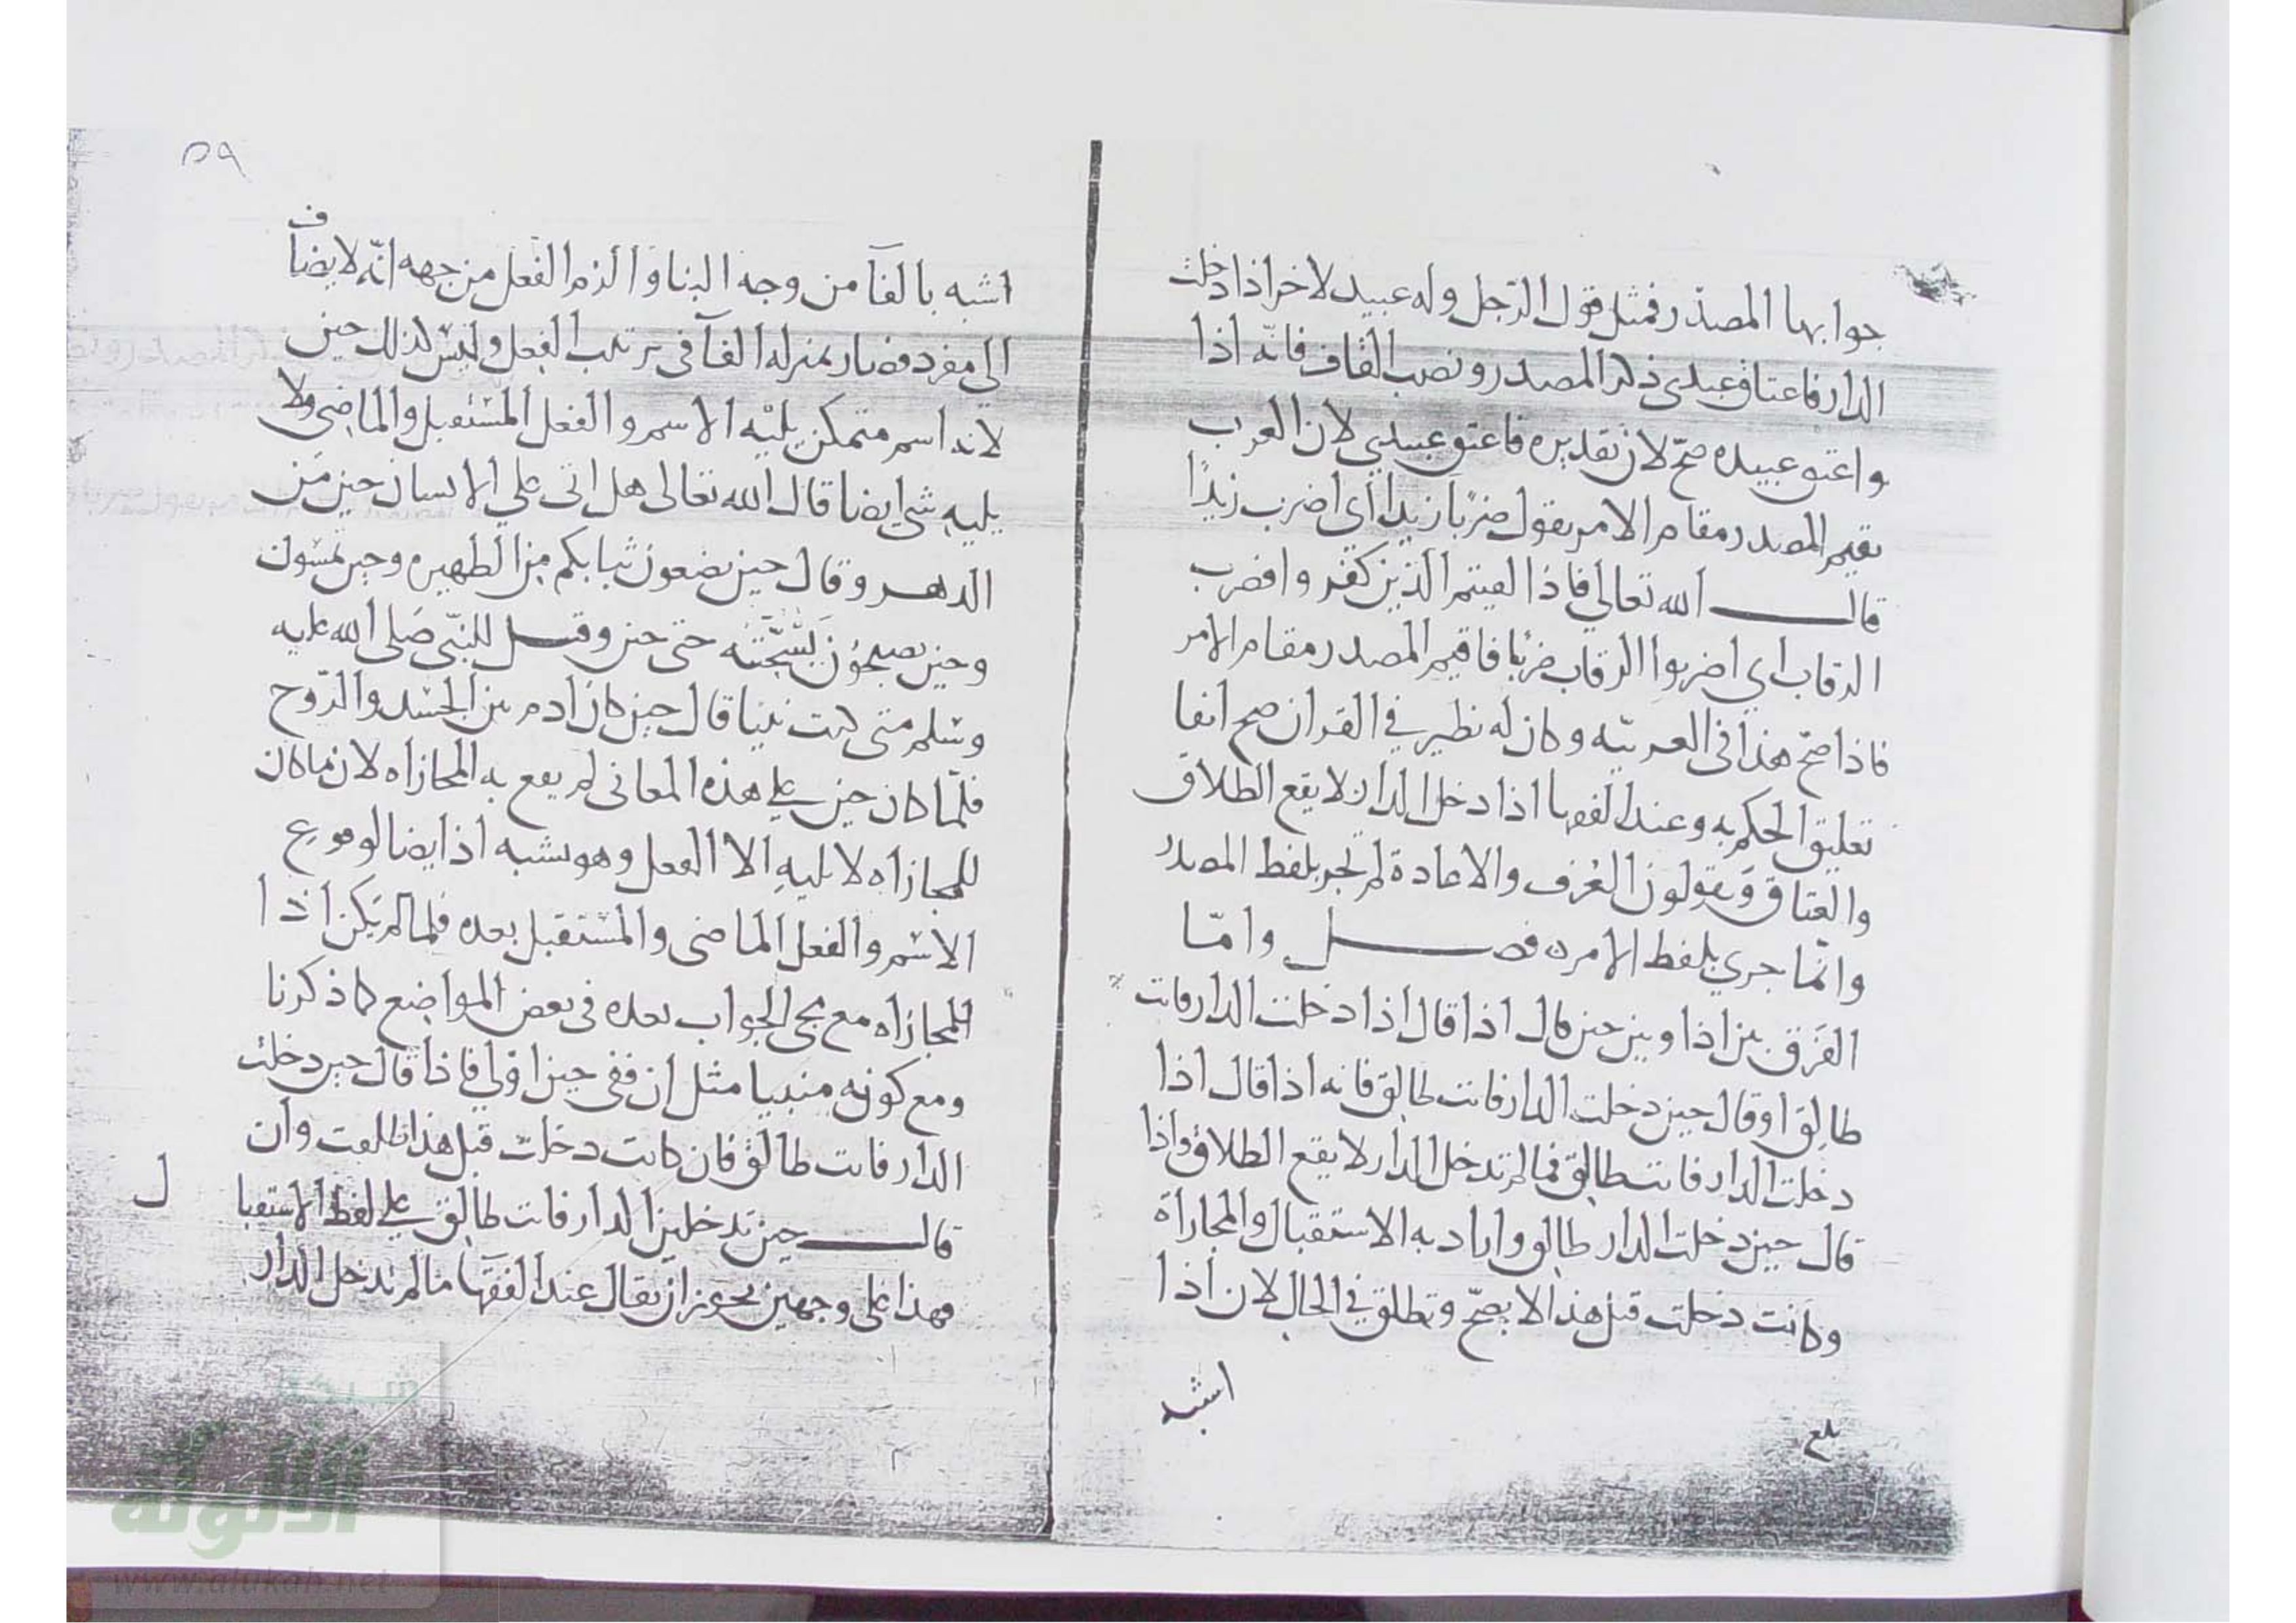 جوابها المصدر فمثل قول الرجل وله عبيد لاخر اذا دخلت
الدار فاعتاق عبدى ذكر المصدر ونصب القاف فانّه اذا
واعتق عبيده صحّ لان تقديره فاعتق عبيدي لان العرب
تقيم المصدر مقام الامر يقول ضربًا زيدا أي اضرب زيدًا
قال الله تعالى فاذا لقيتم الذين كفروا فضرب
الرقاب اي اضربوا الرقاب ضربًا فاقيم المصدر مقام الامر
فاذا صحّ هذا في العربيّه وكان له نظير في القران صح ايضا
تعليق الحكم به وعند الفقها اذا دخل الدار لا يقع الطلاق
والعتاق ويقولون العُرف والاعادة لم تجر بلفظ المصدر
وانما جرى بلفظ الامر ه فصل وامّا
الفَرق بين اذا وبين حين قال اذا قال اذا دخلت الدار فانت
طالِق او قال حين دخلت الدار فانت طالق فانه اذا قال اذا
دخلت الدار فانت طالق فما لم تدخل الدار لا يقع الطلاق واذا
قال حين دخلت الدار طالق واراد به الاستقبال والمجازاة
وكانت دخلت قبل هذا لا يصحّ وتطلق في الحال لان اذا
اشبه
بلغ
٥٩
اشبه بالفآ من وجه البنا والزم الفعل من جهه انّه لا يضاف
الى مفرد فصار بمنزله الفآ في ترتيب الفعل وليس كذلك حين
لانه اسم متمكن يليْه الاسم والفعل المستقبل والماضى ولا
يليه شي ايضا قال الله تعالى هل اتى علي الانسان حين من
الدهر وقال حين تضعون ثيابكم من الظهيره وحين تمسون
وحين تصبحون حتى حين وقيل للنبّي صَلى الله عليه
وسلم متى كنت نبيا قال حين كان ادم بين الجسد والرّوح
فلمّا كان حين علي هذه المعانى لم يقع به المجازاه لان ما كان
للمجازاه لا يليهِ الا الفعل وهو يشبه اذ ايضا لوقوع
الاسم والفعل الماضى والمستقبل بعده فلما لم يَكن اذا
للمجازاه مع مجى الجواب بعده في بعض المواضع كما ذكرنا
ومع كونه مبنيا مثل ان ففى حين اوْلي فاذا قال حين دخلت
الدار فانت طالق فان كانت دخلت قبل هذا طلقت وان
قال حين تدخلين الدار فانت طالق علي لفظ الاستقبال
فهذا على وجهين يجوز ان يقال عند الفقها ما لم تدخل الدار
شبكة
الألوكة
www.alukah.net